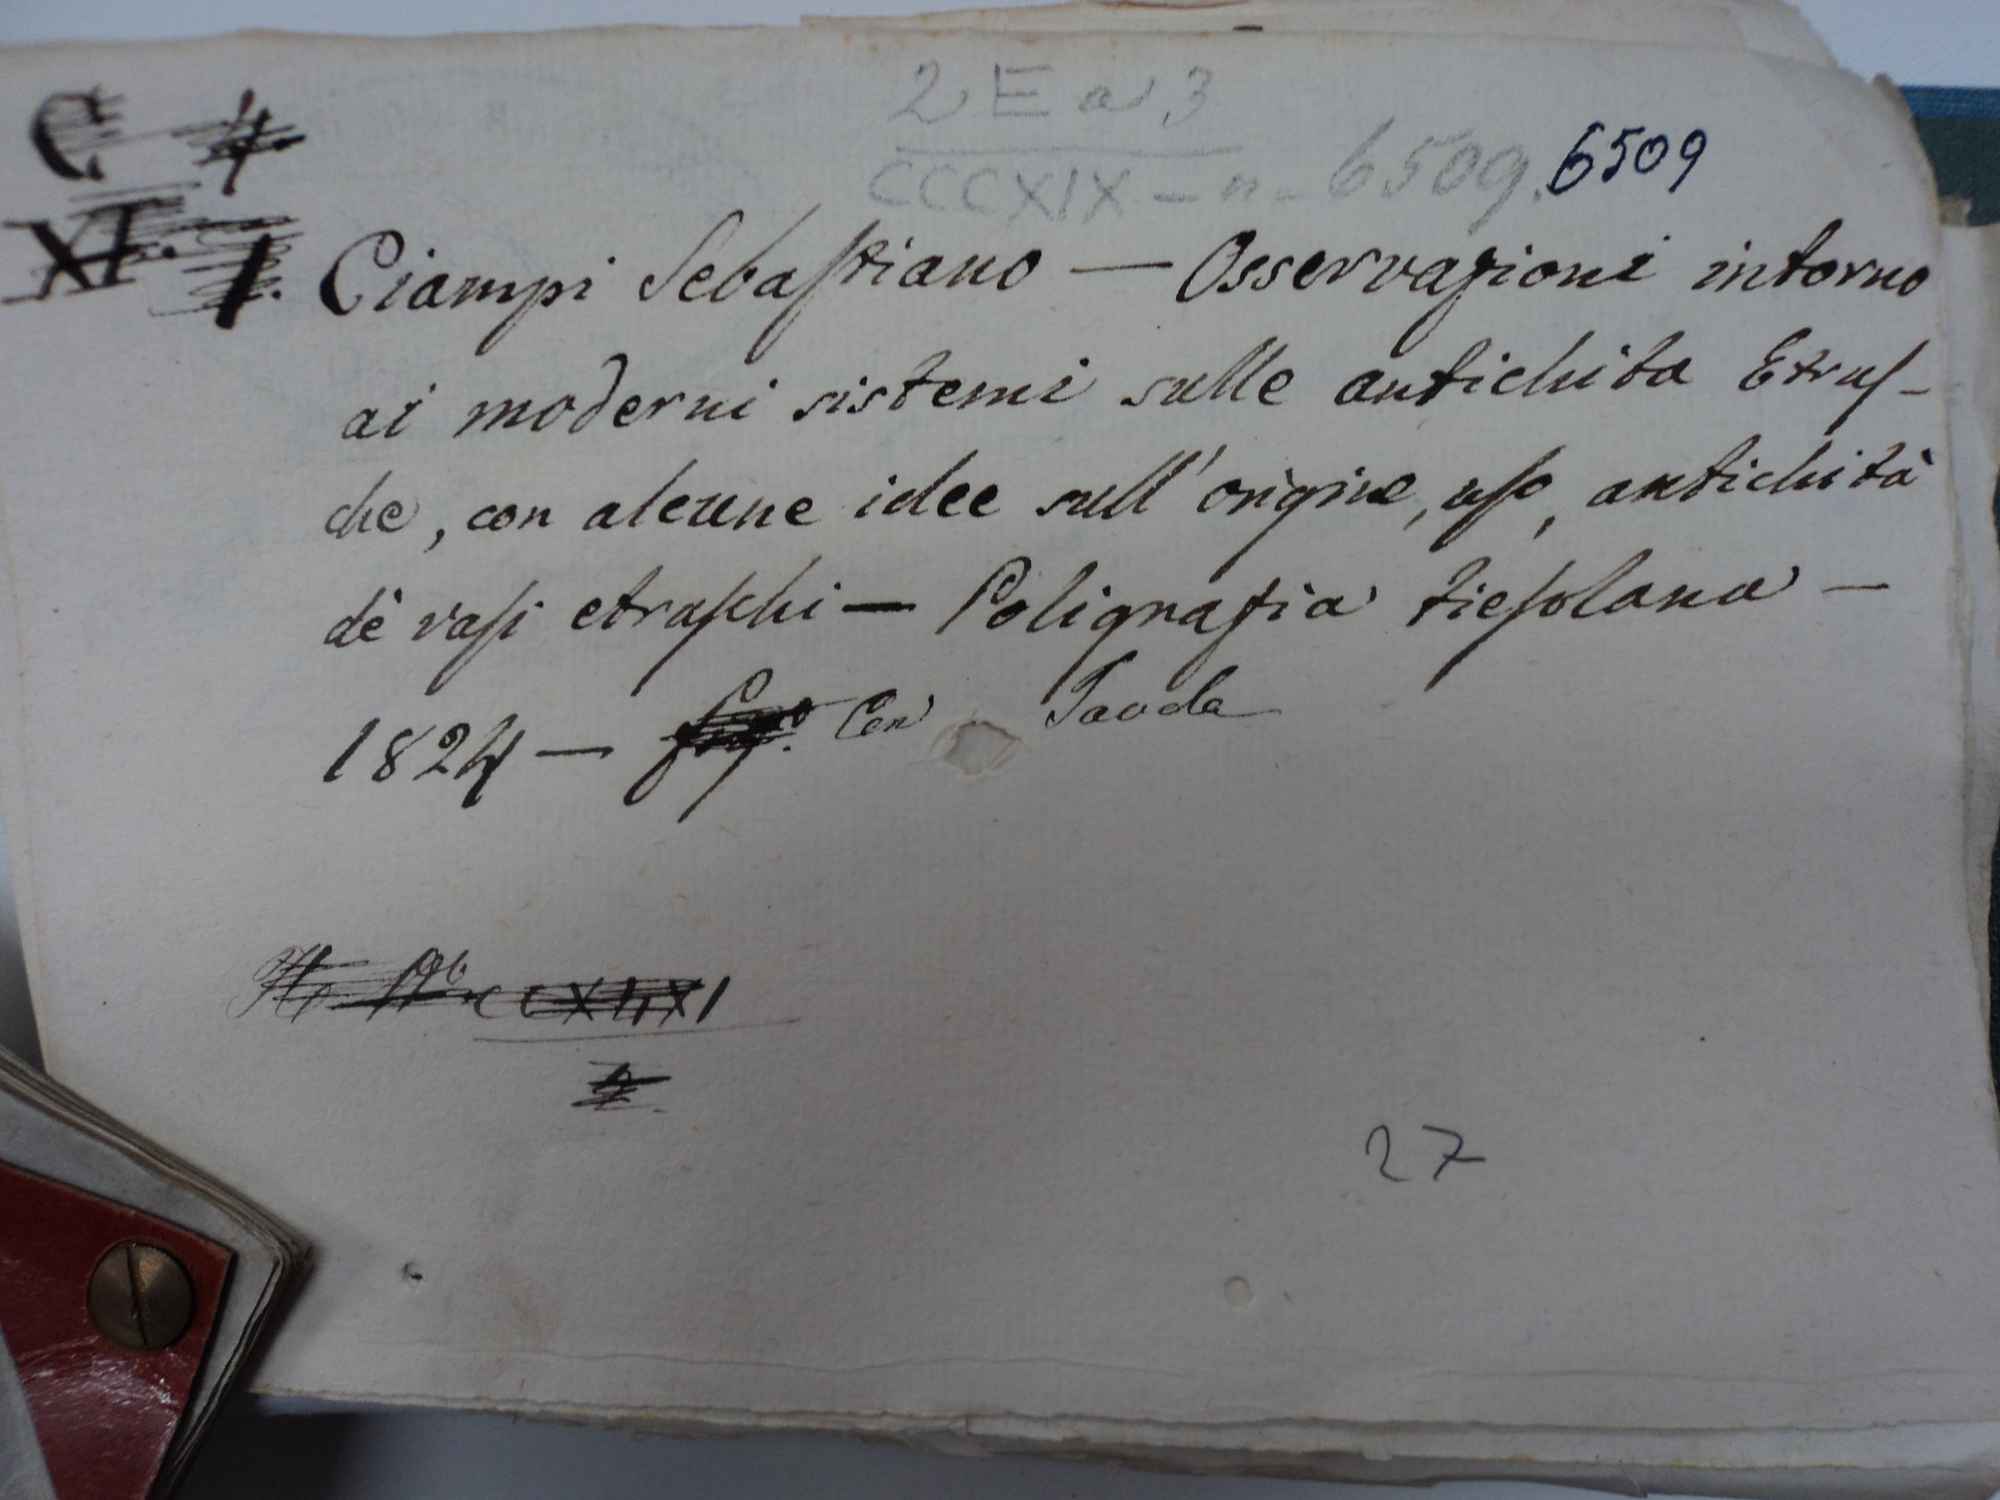 2 E a 3
CCCXIX - n. 6509. 6509
C 4
XI. 1.
Ciampi Sebastiano — Osservazioni intorno
ai moderni sistemi sulle antichita Etrus-
che, con alcune idee sull'origine, uso, antichità
dè vasi etruschi — Poligrafia fiesolana —
1824 — Con Tavola
27